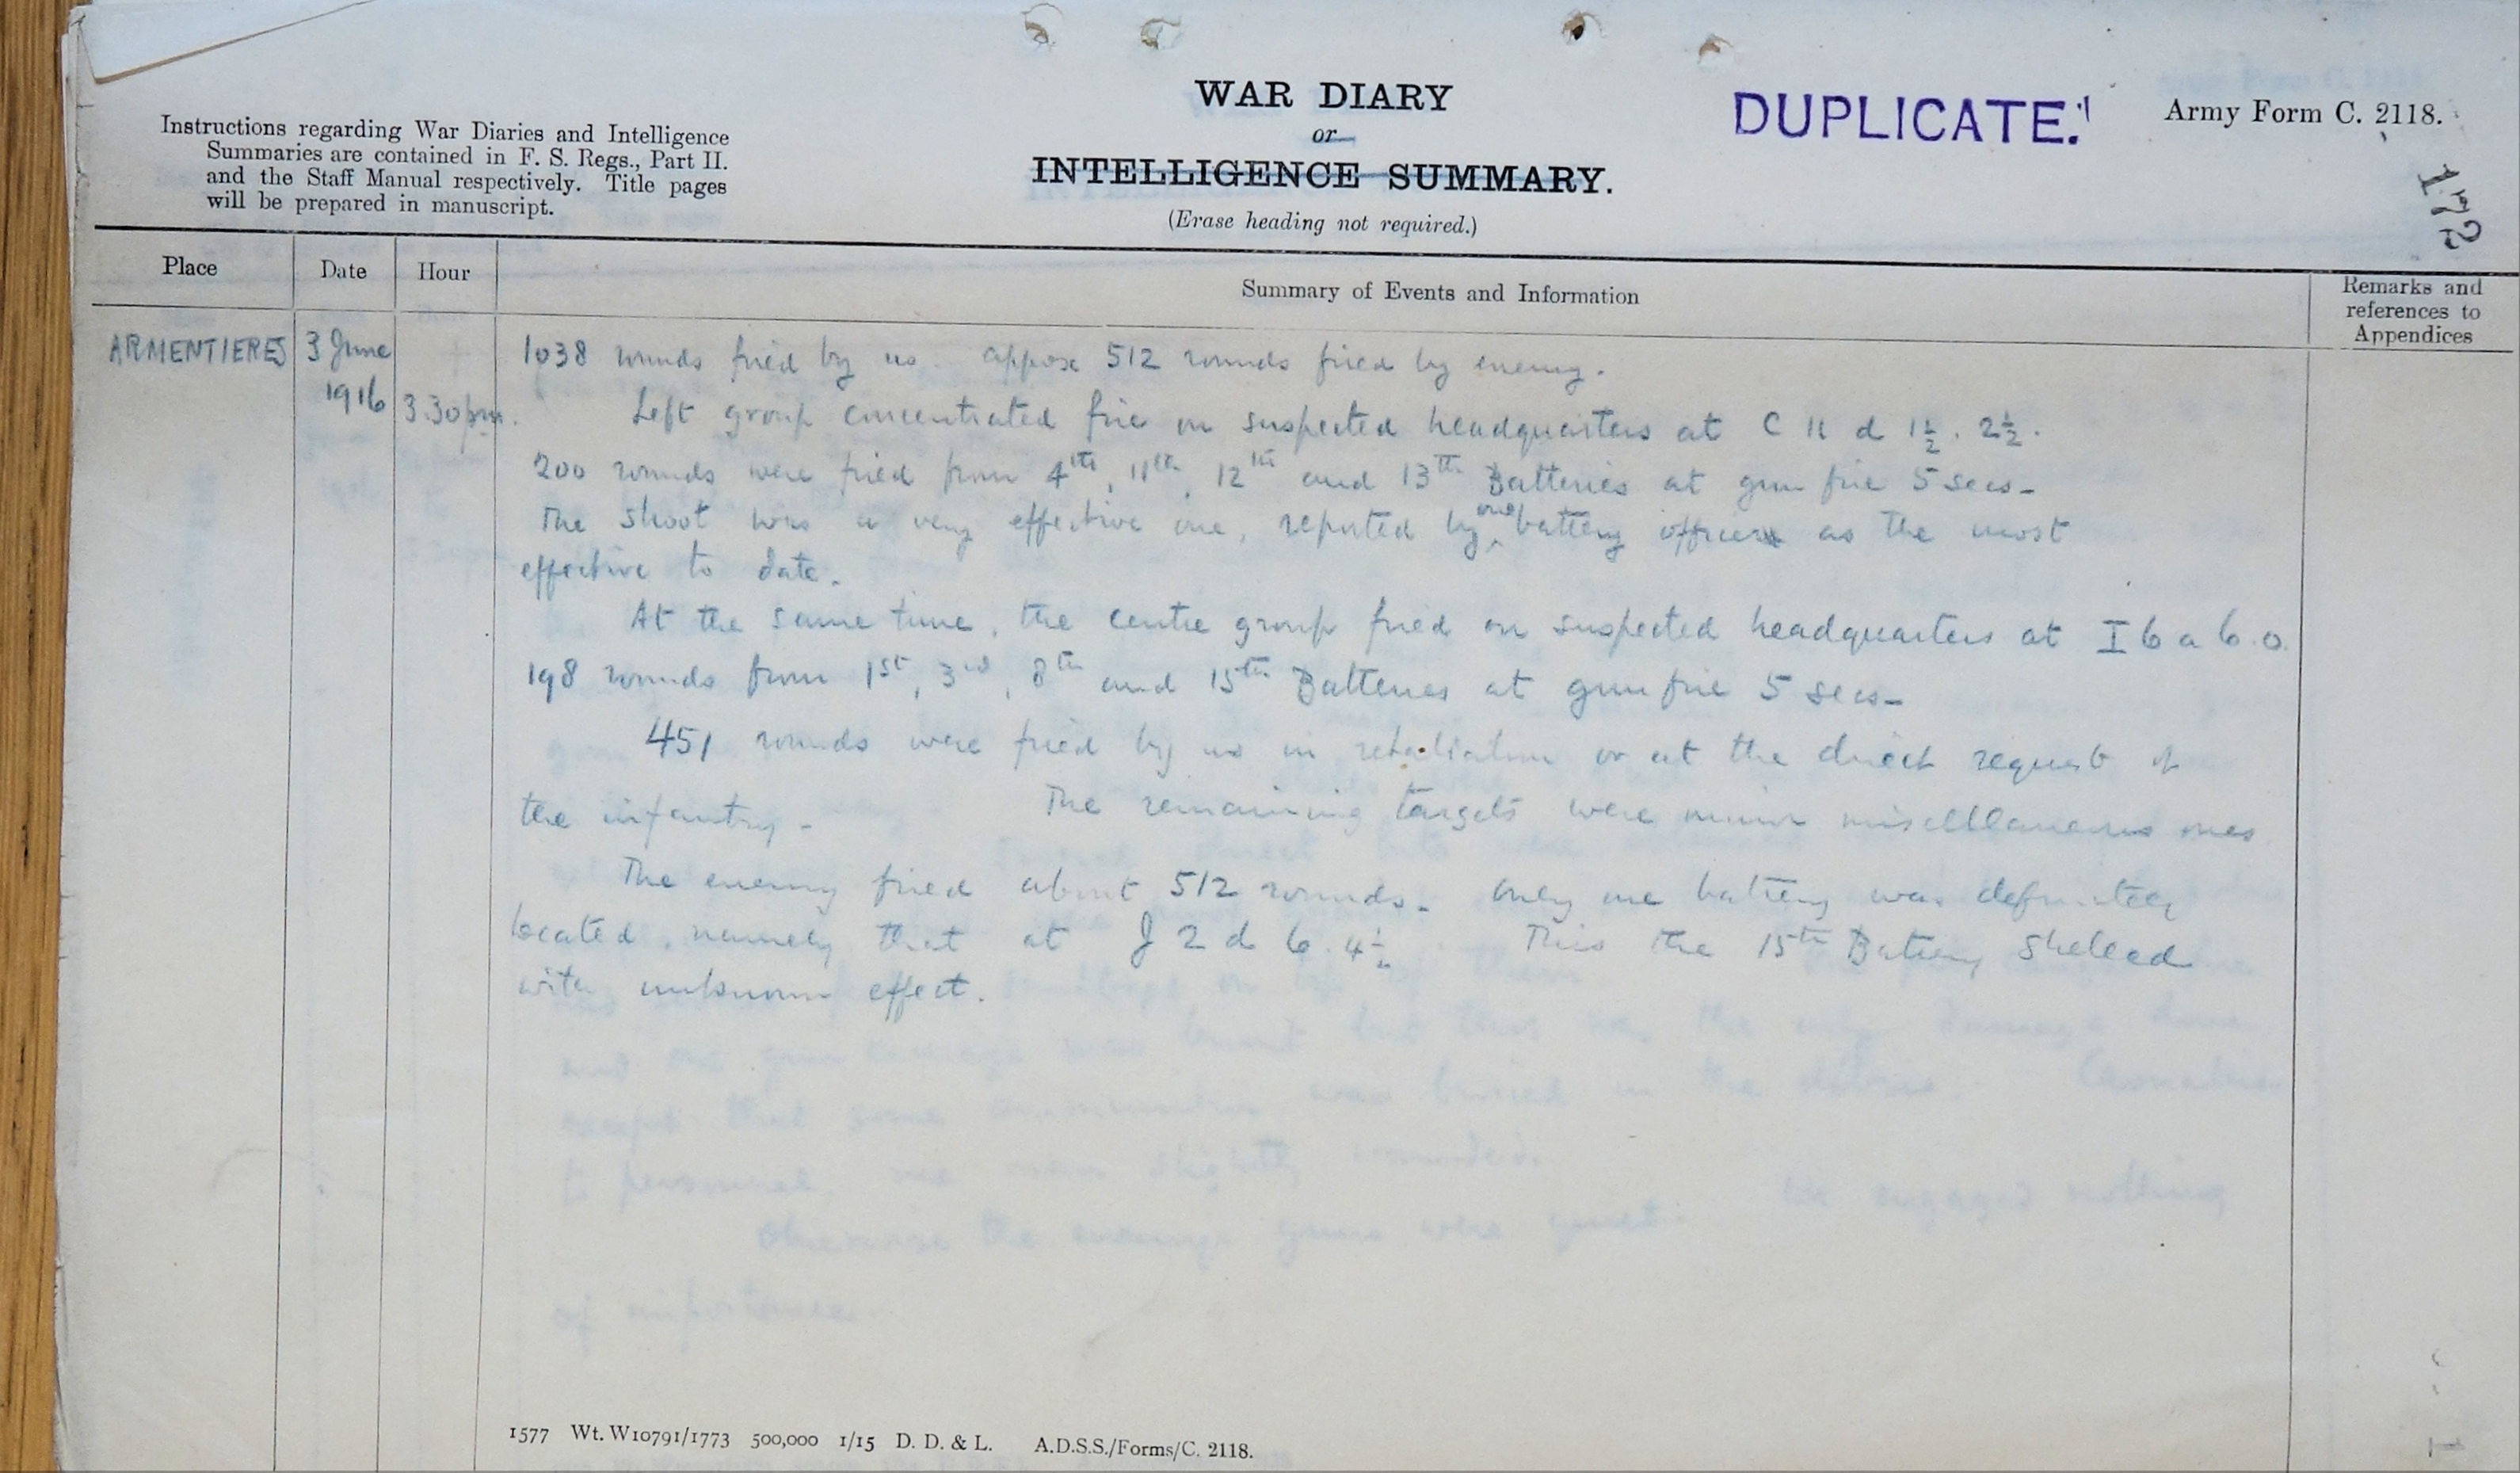 WAR DIARY
or
INTELLIGENCE SUMMARY.
(Erase heading not required.)
DUPLICATE.
Army Form C. 2118.
172
Instructions regarding War Diaries and Intelligence
Summaries are contained in F. S. Regs., Part II.
and the Staff Manual respectively. Title pages
will be prepared in manuscript.
Place
Date
Hour
Summary of Events and Information
Remarks and
references to
Appendices
ARMENTIERES
3 June
1916
3.30 pm.
1038 rounds fired by us. approx 512 rounds fired by enemy.
Left group concentrated fire on suspected headquarters at C 11 d 1½. 2½.
200 rounds were fired from 4th, 11th, 12th and 13th Batteries at gun fire 5 secs-
The shoot was a very effective one, reported by one battery officer as the most
effective to date.
At the same time, the centre group fired on suspected headquarters at I 6 a 6.0.
198 rounds from 1st, 3rd, 8th and 15th Batteries at gun fire 5 secs-
451 rounds were fired by us in retaliation or at the direct request of
the infantry- The remaining targets were minor miscelllaneous ones
The enemy fired about 512 rounds. only one battery was definitely
located, namely that at J 2 d 6. 4½. This the 15th Battery shelled
with unknown effect.
1577 Wt. W10791/1773 500,000 1/15 D. D. & L. A.D.S.S./Forms/C. 2118.